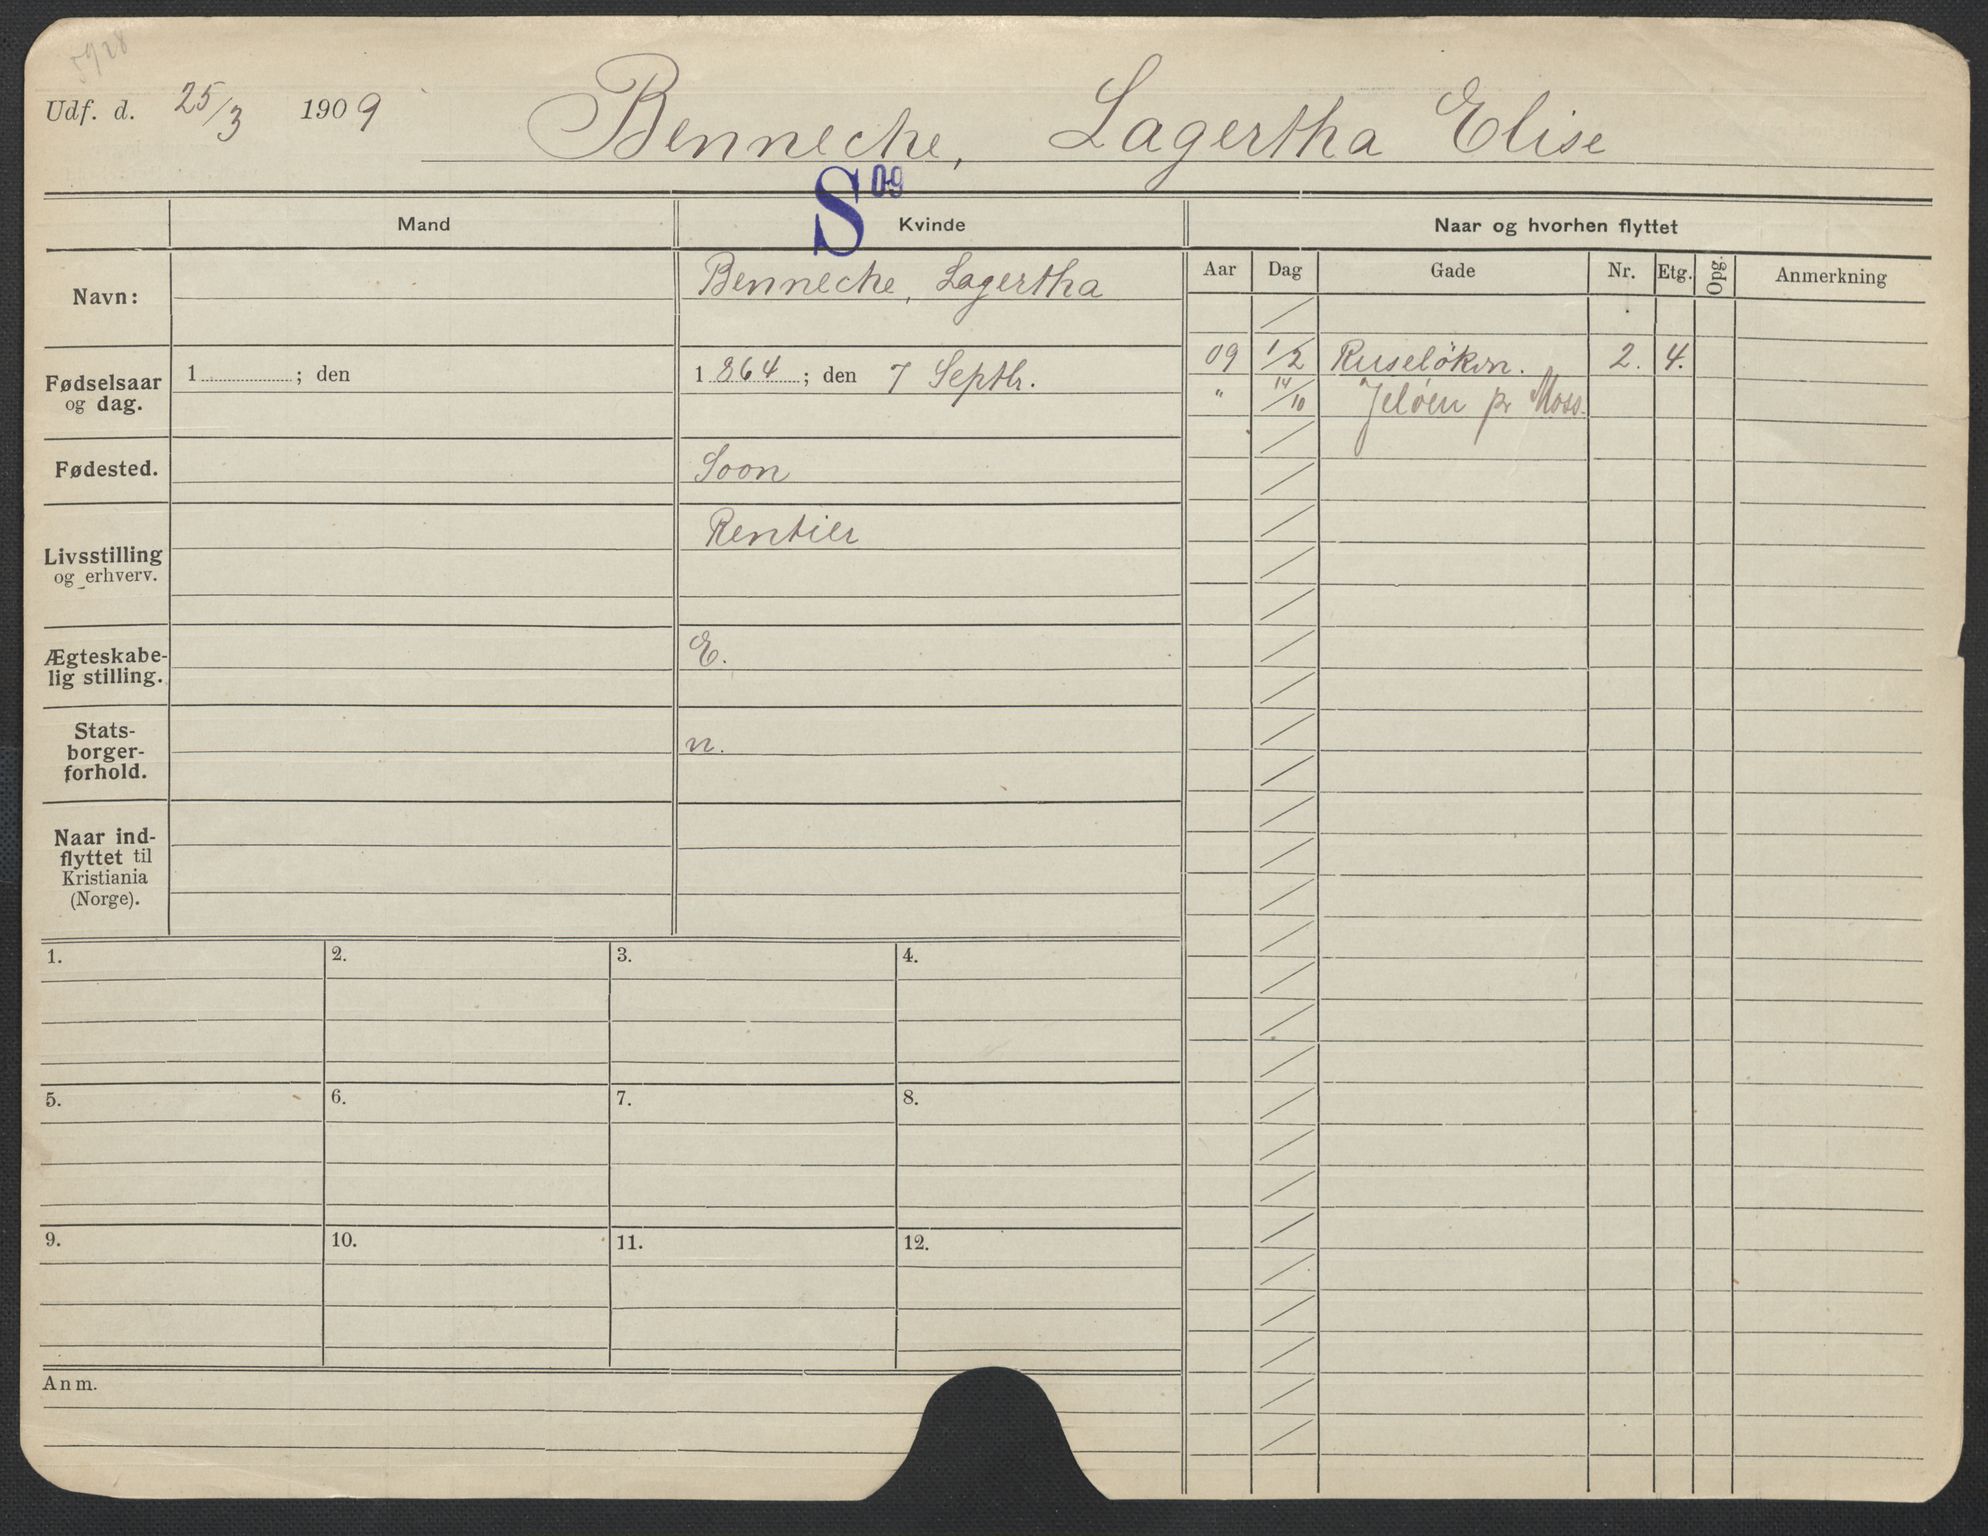 5928
Udf. d. 25/3 1909 Bennecke, Lagertha Elise
S 09
Mand Kvinde Naar og hvorhen flyttet
Aar Dag Gade Nr. Etg. Opg. Anmerkning
Navn: Bennecke, Lagertha
09 1/2 Ruseløkvn. 2. 4.
Fødselsaar og dag. 1 ; den 1864 ; den 7 Septbr.
" 14/10 Jeløen pr Moss.
Fødested. Soon
Livsstilling og erhverv. Rentier
Ægteskabe-
lig stilling. E.
Stats-
borger-
forhold. n.
Naar ind-
flyttet til
Kristiania
(Norge).
1. 2. 3. 4.
5. 6. 7. 8.
9. 10. 11. 12.
Anm.